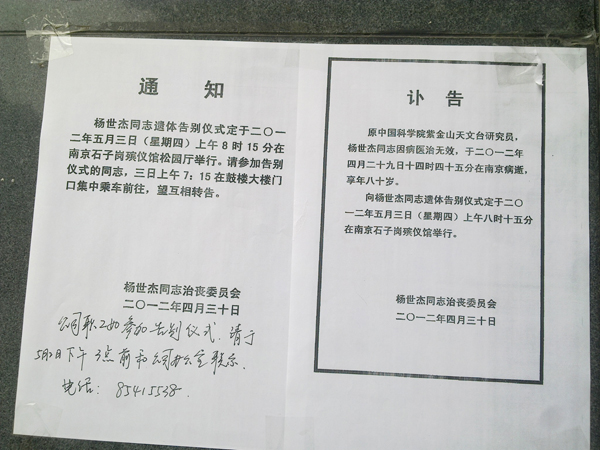 通 知
杨世杰同志遗体告别仪式定于二〇一
二年五月三日（星期四）上午8时15分在
南京石子岗殡仪馆松园厅举行。请参加告别
仪式的同志，三日上午7：15在鼓楼大楼门
口集中乘车前往，望互相转告。
杨世杰同志治丧委员会
二〇一二年四月三十日
公司职工如参加告别仪式，请于
5月2日下午3点前和公司办公室联系。
电话：85415538.
讣 告
原中国科学院紫金山天文台研究员，
杨世杰同志因病医治无效，于二〇一二年
四月二十九日十四时四十五分在南京病逝，
享年八十岁。
向杨世杰同志遗体告别仪式定于二〇
一二年五月三日（星期四）上午八时十五分
在南京石子岗殡仪馆举行。
杨世杰同志治丧委员会
二〇一二年四月三十日